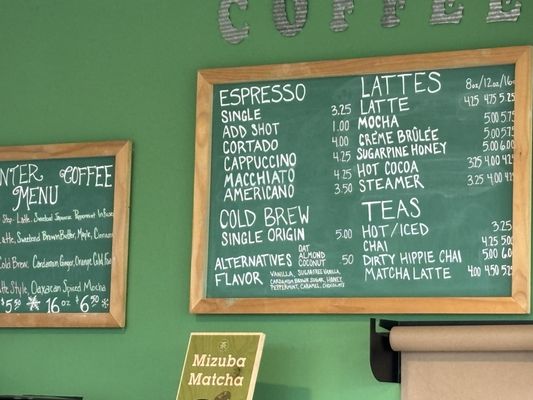 COFFEE
NTER COFFEE
MENU
Step-Latte, Sweetened Japanese Peppermint Infused
Latte, Sweetened Brown Butter, Maple, Cinnamon
Cold Brew, Cardamom Ginger, Orange, Cold Foam
Latte Style, Oaxacan Spiced Mocha
$5.50 16oz $6.50
ESPRESSO
SINGLE 3.25
ADD SHOT 1.00
CORTADO 4.00
CAPPUCCINO 4.25
MACCHIATO 4.25
AMERICANO 3.50
COLD BREW
SINGLE ORIGIN 5.00
ALTERNATIVES OAT ALMOND COCONUT .50
FLAVOR VANILLA, SUGARFREE VANILLA,
CARDAMON BROWN SUGAR, HONEY,
PEPPERMINT, CARAMEL, CHOCOLATE
LATTES 8oz/12oz/16oz
LATTE 4.25 4.75 5.25
MOCHA 5.00 5.75
CRÉME BRÛLÉE 5.00 5.75
SUGARPINE HONEY 5.00 6.00
HOT COCOA 3.25 4.00 4.75
STEAMER 3.25 4.00 4.75
TEAS
HOT/ICED 3.25
CHAI 4.25 5.00
DIRTY HIPPIE CHAI 5.00 6.00
MATCHA LATTE 4.00 4.50 5.25
Mizuba
Matcha